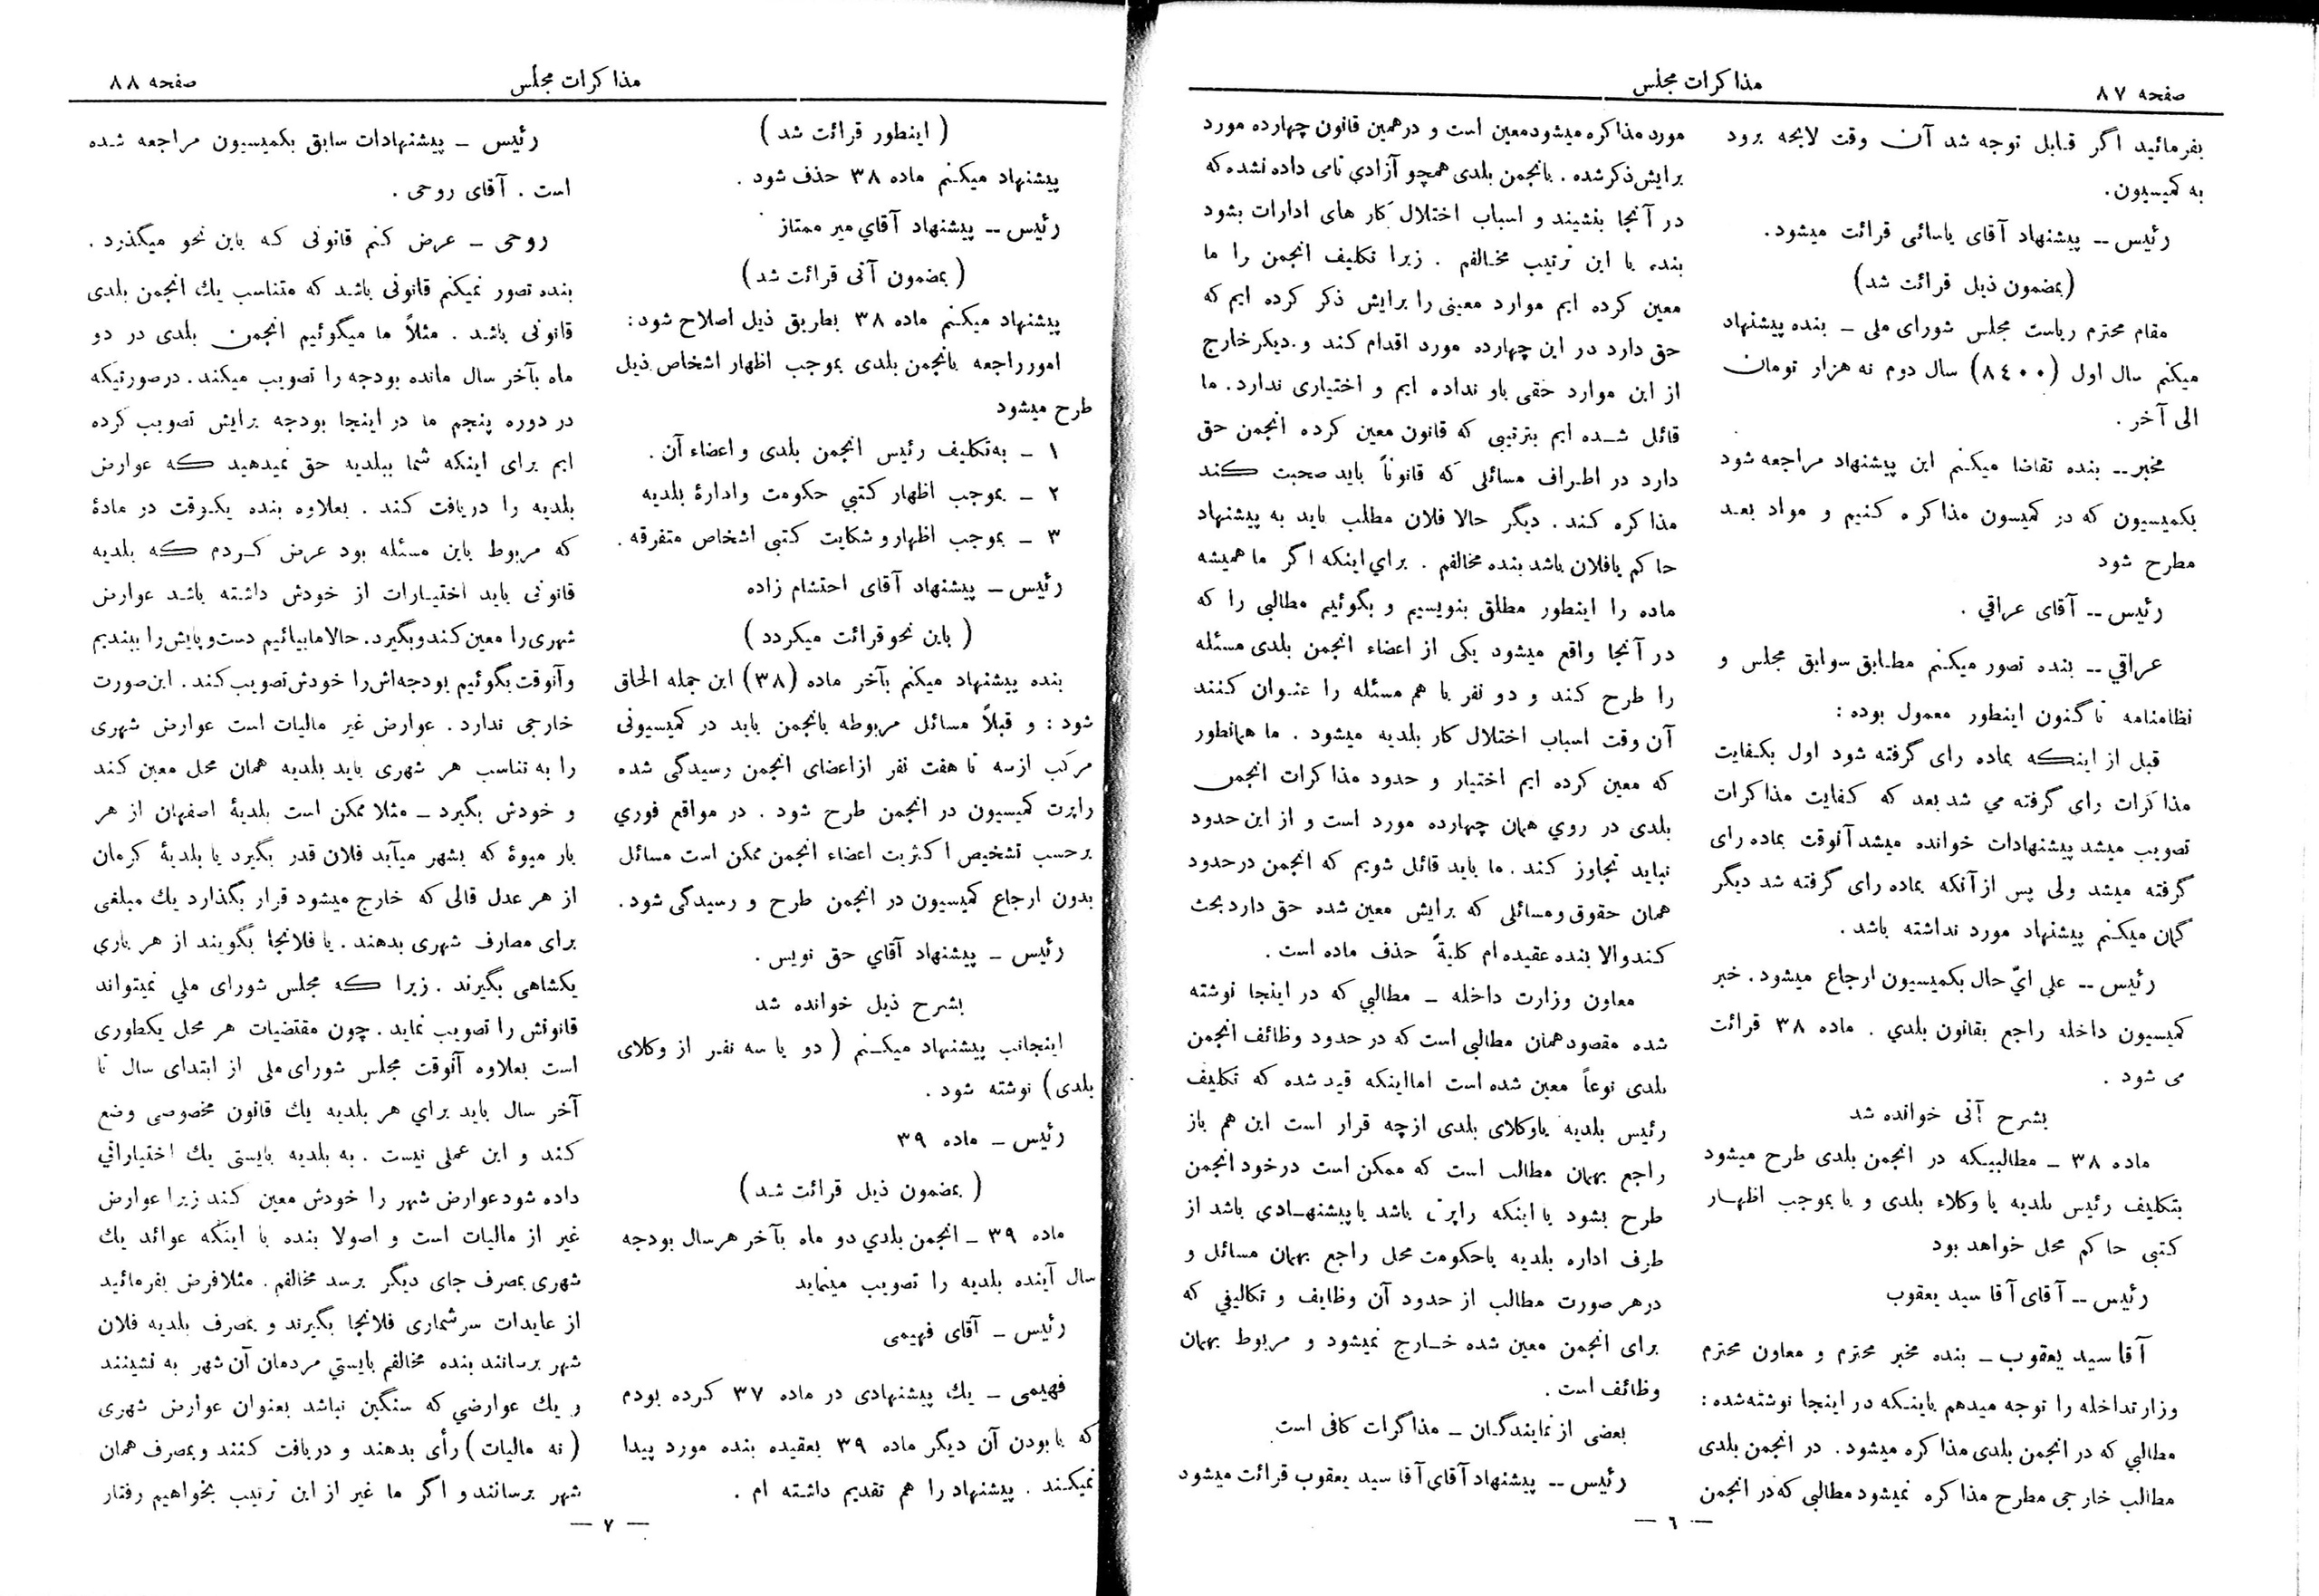 صفحه ۸۷
مذاکرات مجلس
بفرمائید اگر قابل توجه شد آن وقت لایحه برود
به کمیسیون.
رئیس -- پیشنهاد آقای یاسائی قرائت میشود.
(بمضمون ذیل قرائت شد)
مقام محترم ریاست مجلس شورای ملی - بنده پیشنهاد
میکنم سال اول (۸٤۰۰) سال دوم نه هزار تومان
الی آخر.
مخبر -- بنده تقاضا میکنم این پیشنهاد مراجعه شود
بکمیسیون که در کمیسون مذاکره کنیم و مواد بعد
مطرح شود
رئیس -- آقای عراقي.
عراقي -- بنده تصور میکنم مطابق سوابق مجلس و
نظامنامه تا کنون اینطور معمول بوده:
قبل از اینکه بماده رای گرفته شود اول بکفایت
مذاکرات رای گرفته می شد بعد که کفایت مذاکرات
تصویب میشد پیشنهادات خوانده میشد آنوقت بماده رای
گرفته میشد ولی پس از آنکه بماده رای گرفته شد دیگر
گمان میکنم پیشنهاد مورد نداشته باشد.
رئیس -- علی ایّ حال بکمیسیون ارجاع میشود. خبر
کمیسیون داخله راجع بقانون بلدي. ماده ۳۸ قرائت
می شود.
بشرح آتی خوانده شد
ماده ۳۸ - مطالبیکه در انجمن بلدی طرح میشود
بتکلیف رئیس بلدیه یا وکلاء بلدی و یا بموجب اظهار
کتبی حاکم محل خواهد بود
رئیس -- آقای آقا سید یعقوب
آقا سید یعقوب - بنده مخبر محترم و معاون محترم
وزارتداخله را توجه میدهم باینکه در اینجا نوشته‌شده:
مطالبي که در انجمن بلدی مذاکره میشود. در انجمن بلدی
مطالب خارجی مطرح مذاکره نمیشود مطالبی که در انجمن
مورد مذاکره میشود معین است و در همین قانون چهارده مورد
برایش ذکر شده. بانجمن بلدی همچو آزادي تامی داده نشده که
در آنجا بنشیند و اسباب اختلال کار های ادارات بشود
بنده با این ترتیب مخالفم. زیرا تکلیف انجمن را ما
معین کرده ایم موارد معینی را برایش ذکر کرده ایم که
حق دارد در این چهارده مورد اقدام کند و دیگر خارج
از این موارد حقی باو نداده ایم و اختیاری ندارد. ما
قائل شده ایم بترتیبی که قانون معین کرده انجمن حق
دارد در اطراف مسائلی که قانوناً باید صحبت کند
مذاکره کند. دیگر حالا فلان مطلب باید به پیشنهاد
حاکم یا فلان باشد بنده مخالفم. براي اینکه اگر ما همیشه
ماده را اینطور مطلق بنویسیم و بگوئیم مطالبی را که
در آنجا واقع میشود یکی از اعضاء انجمن بلدی مسئله
را طرح کند و دو نفر با هم مسئله را عنوان کنند
آن وقت اسباب اختلال کار بلدیه میشود. ما همانطور
که معین کرده ایم اختیار و حدود مذاکرات انجمن
بلدی در روي همان چهارده مورد است و از این حدود
نباید تجاوز کند. ما باید قائل شویم که انجمن در حدود
همان حقوق و مسائلی که برایش معین شده حق دارد بحث
کند والا بنده عقیده ام کلیةً حذف ماده است.
معاون وزارت داخله - مطالبي که در اینجا نوشته
شده مقصود همان مطالبی است که در حدود وظائف انجمن
بلدی نوعاً معین شده است اما اینکه قید شده که تکلیف
رئیس بلدیه یا وکلای بلدی از چه قرار است این هم باز
راجع بهمان مطالب است که ممکن است در خود انجمن
طرح بشود یا اینکه راپرت باشد یا پیشنهادی باشد از
طرف اداره بلدیه یا حکومت محل راجع بهمان مسائل و
در هر صورت مطالب از حدود آن وظایف و تکالیفي که
برای انجمن معین شده خارج نمیشود و مربوط بهمان
وظائف است.
بعضی از نمایندگان - مذاکرات کافی است
رئیس -- پیشنهاد آقای آقا سید یعقوب قرائت میشود
— ٦ —
مذاکرات مجلس
صفحه ۸۸
(اینطور قرائت شد)
پیشنهاد میکنم ماده ۳۸ حذف شود.
رئیس -- پیشنهاد آقاي میر ممتاز
(بمضمون آتی قرائت شد)
پیشنهاد میکنم ماده ۳۸ بطریق ذیل اصلاح شود:
امور راجعه بانجمن بلدی بموجب اظهار اشخاص ذیل
طرح میشود
۱ - به تکلیف رئیس انجمن بلدی و اعضاء آن.
۲ - بموجب اظهار کتبي حکومت و ادارهٔ بلدیه
۳ - بموجب اظهار و شکایت کتبی اشخاص متفرقه.
رئیس - پیشنهاد آقای احتشام زاده
(باین نحو قرائت میگردد)
بنده پیشنهاد میکنم بآخر ماده (۳۸) این جمله الحاق
شود: و قبلاً مسائل مربوطه بانجمن باید در کمیسیونی
مرکب از سه تا هفت نفر از اعضای انجمن رسیدگی شده
راپرت کمیسیون در انجمن طرح شود. در مواقع فوري
برحسب تشخیص اکثریت اعضاء انجمن ممکن است مسائل
بدون ارجاع کمیسیون در انجمن طرح و رسیدگی شود.
رئیس - پیشنهاد آقاي حق نویس.
بشرح ذیل خوانده شد
اینجانب پیشنهاد میکنم (دو یا سه نفر از وکلای
بلدی) نوشته شود.
رئیس - ماده ۳۹
(بمضمون ذیل قرائت شد)
ماده ۳۹ - انجمن بلدي دو ماه بآخر هر سال بودجه
سال آینده بلدیه را تصویب مینماید
رئیس - آقای فهیمی
فهیمی - یك پیشنهادی در ماده ۳۷ کرده بودم
که با بودن آن دیگر ماده ۳۹ بعقیده بنده مورد پیدا
نمیکند. پیشنهاد را هم تقدیم داشته ام.
رئیس - پیشنهادات سابق بکمیسیون مراجعه شده
است. آقای روحی.
روحی - عرض کنم قانونی که باین نحو میگذرد.
بنده تصور نمیکنم قانونی باشد که متناسب یك انجمن بلدی
قانونی باشد. مثلاً ما میگوئیم انجمن بلدی در دو
ماه بآخر سال مانده بودجه را تصویب میکند. در صورتیکه
در دوره پنجم ما در اینجا بودجه برایش تصویب کرده
ایم برای اینکه شما ببلدیه حق نمیدهید که عوارض
بلدیه را دریافت کند. بعلاوه بنده یکوقت در مادهٔ
که مربوط باین مسئله بود عرض کردم که بلدیه
قانونی باید اختیارات از خودش داشته باشد عوارض
شهری را معین کند و بگیرد. حالا ما بیائیم دست و پایش را ببندیم
و آنوقت بگوئیم بودجه‌اش را خودش تصویب کند. این صورت
خارجی ندارد. عوارض غیر مالیات است عوارض شهری
را به تناسب هر شهری باید بلدیه همان محل معین کند
و خودش بگیرد - مثلا ممکن است بلدیهٔ اصفهان از هر
بار میوهٔ که بشهر میآید فلان قدر بگیرد یا بلدیهٔ کرمان
از هر عدل قالی که خارج میشود قرار بگذارد یك مبلغی
برای مصارف شهری بدهند. یا فلانجا بگویند از هر باری
یکشاهی بگیرند. زیرا که مجلس شورای ملي نمیتواند
قانونش را تصویب نماید. چون مقتضیات هر محل یکطوری
است بعلاوه آنوقت مجلس شورای ملی از ابتدای سال تا
آخر سال باید براي هر بلدیه یك قانون مخصوصی وضع
کند و این عملی نیست. به بلدیه بایستی یك اختیاراتي
داده شود عوارض شهر را خودش معین کند زیرا عوارض
غیر از مالیات است و اصولا بنده با اینکه عوائد یك
شهری بمصرف جای دیگر برسد مخالفم. مثلا فرض بفرمائید
از عایدات سرشماری فلانجا بگیرند و بمصرف بلدیه فلان
شهر برسانند بنده مخالفم بایستي مردمان آن شهر به نشینند
و یك عوارضي که سنگین نباشد بعنوان عوارض شهری
(نه مالیات) رأی بدهند و دریافت کنند و بمصرف همان
شهر برسانند و اگر ما غیر از این ترتیب بخواهیم رفتار
— ۷ —